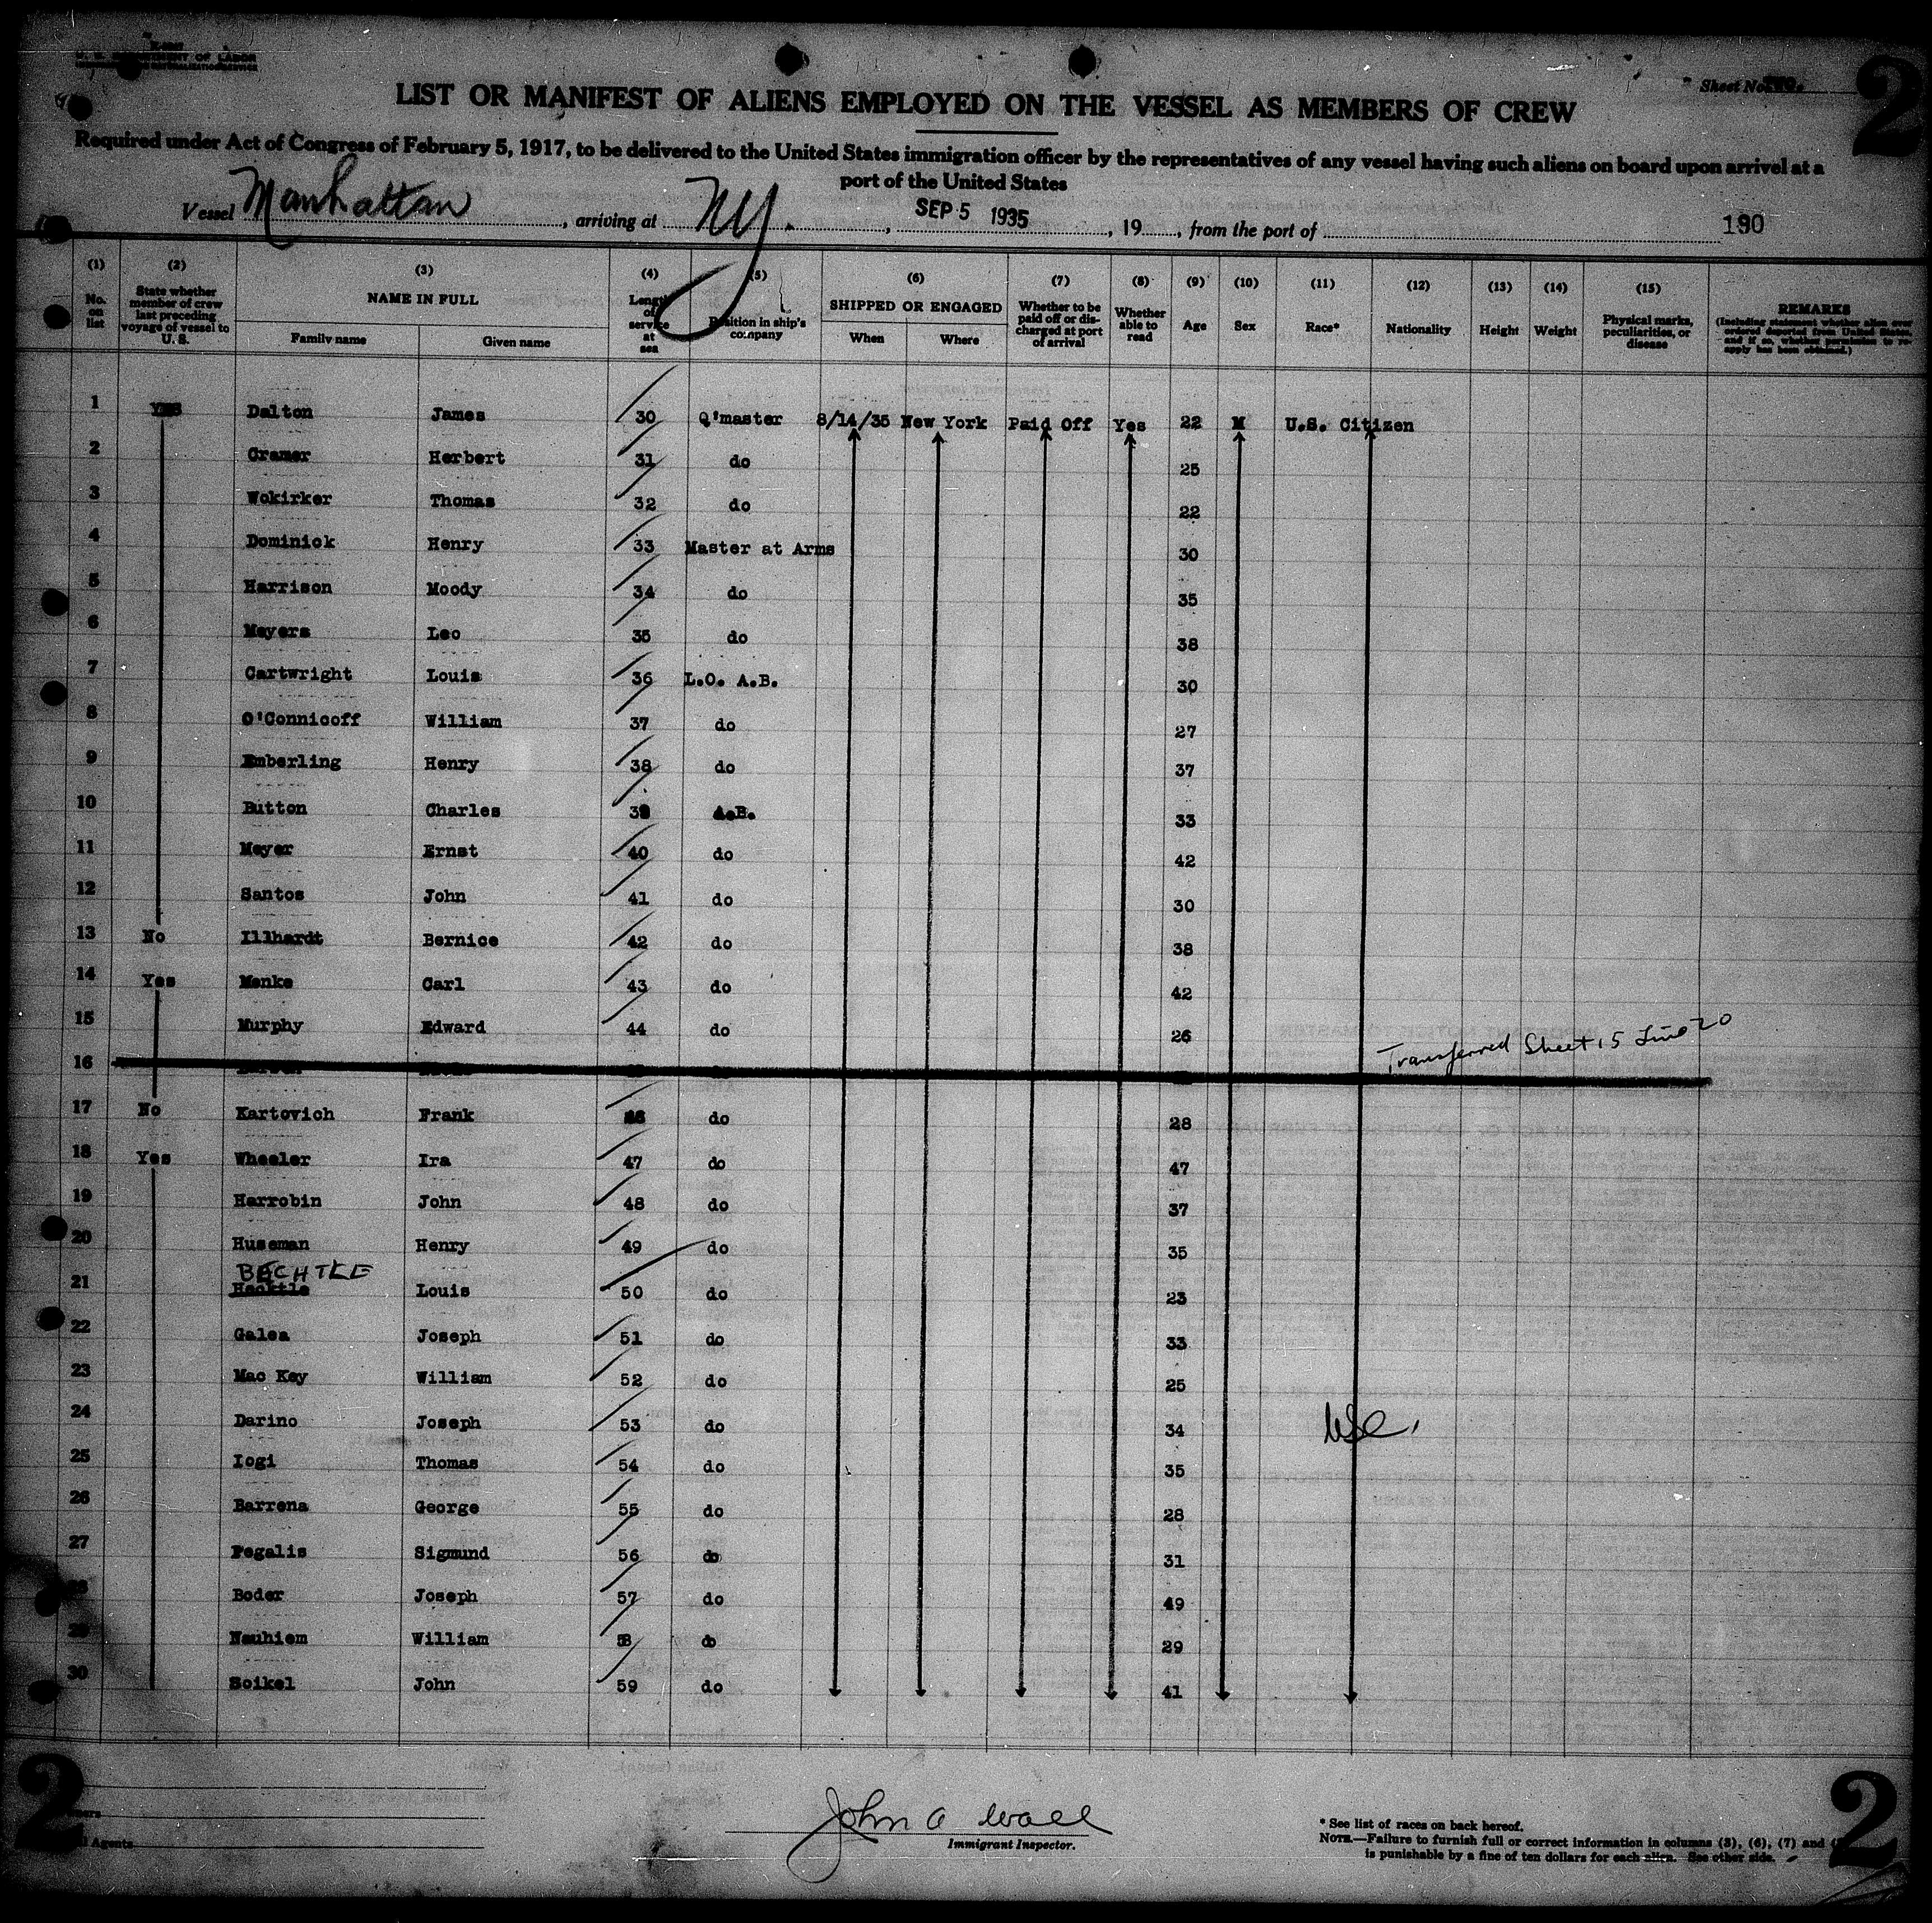 U. S. DEPARTMENT OF LABOR
Sheet No. TWO.
2
LIST OR MANIFEST OF ALIENS EMPLOYED ON THE VESSEL AS MEMBERS OF CREW
Required under Act of Congress of February 5, 1917, to be delivered to the United States immigration officer by the representatives of any vessel having such aliens on board upon arrival at a
port of the United States
Vessel Manhattan, arriving at NY., SEP 5 1935, 19, from the port of 190
(1) (2) (3) (4) (5) (6) (7) (8) (9) (10) (11) (12) (13) (14) (15)
No. on list State whether member of crew last preceding voyage of vessel to U. S. NAME IN FULL Length of service at sea Position in ship's company SHIPPED OR ENGAGED Whether to be paid off or discharged at port of arrival Whether able to read Age Sex Race* Nationality Height Weight Physical marks, peculiarities, or disease REMARKS (Including statement whether alien ever ordered deported from United States, and if so, whether permission to reapply has been obtained.)
Family name Given name When Where
1 YES Dalton James 30 Q'master 8/14/35 New York Paid Off Yes 22 M U.S. Citizen
2 Cramer Herbert 31 do 25
3 Wokirker Thomas 32 do 22
4 Dominick Henry 33 Master at Arms 30
5 Harrison Moody 34 do 35
6 Meyers Leo 35 do 38
7 Cartwright Louis 36 L.O. A.B. 30
8 O'Connicoff William 37 do 27
9 Emberling Henry 38 do 37
10 Button Charles 39 A.B. 33
11 Meyer Ernst 40 do 42
12 Santos John 41 do 30
13 No Illhardt Bernice 42 do 38
14 Yes Menke Carl 43 do 42
15 Murphy Edward 44 do 26
16 Transferred Sheet 15 Line 20
17 No Kartovich Frank 46 do 28
18 Yes Wheeler Ira 47 do 47
19 Harrobin John 48 do 37
20 Huseman Henry 49 do 35
BECHTLE
21 Hecktle Louis 50 do 23
22 Galea Joseph 51 do 33
23 Mac Kay William 52 do 25
24 Darino Joseph 53 do 34 USC.
25 Iogi Thomas 54 do 35
26 Barrena George 55 do 28
27 Pegalis Sigmund 56 do 31
28 Boder Joseph 57 do 49
29 Nauhiem William 58 do 29
30 Soikel John 59 do 41
2
Agents
John A Wall
Immigrant Inspector.
* See list of races on back hereof.
NOTE.—Failure to furnish full or correct information in columns (3), (6), (7) and
is punishable by a fine of ten dollars for each alien. See other side.
2